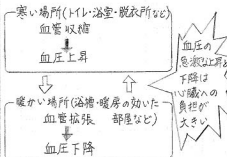 寒い場所(トイレ・浴室・脱衣所など)
血管収縮
血圧上昇
暖かい場所(浴槽・暖房の効いた
血管拡張 部屋など)
血圧下降
血圧の
急激な上昇と
下降は
心臓への
負担が
大きい